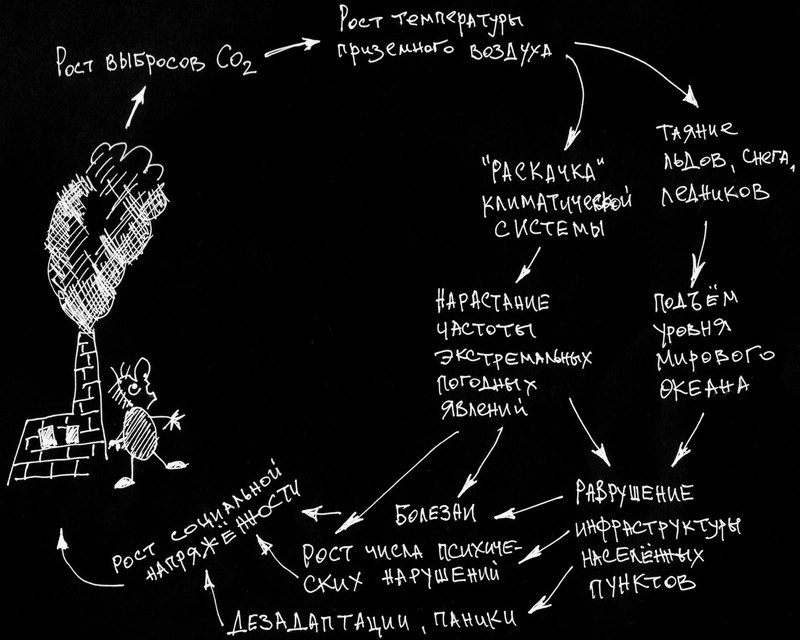 Рост выбросов CO2
Рост температуры
приземного воздуха
"РАСКАЧКА"
КЛИМАТИЧЕСКОЙ
СИСТЕМЫ
ТАЯНИЕ
ЛЬДОВ, СНЕГА,
ЛЕДНИКОВ
НАРАСТАНИЕ
ЧАСТОТЫ
ЭКСТРЕМАЛЬНЫХ
ПОГОДНЫХ
ЯВЛЕНИЙ
ПОДЪЁМ
УРОВНЯ
МИРОВОГО
ОКЕАНА
РАЗРУШЕНИЕ
ИНФРАСТРУКТУРЫ
НАСЕЛЁННЫХ
ПУНКТОВ
БОЛЕЗНИ
РОСТ ЧИСЛА ПСИХИЧЕ-
СКИХ НАРУШЕНИЙ
ДЕЗАДАПТАЦИИ, ПАНИКИ
РОСТ СОЦИАЛЬНОЙ
НАПРЯЖЁННОСТИ